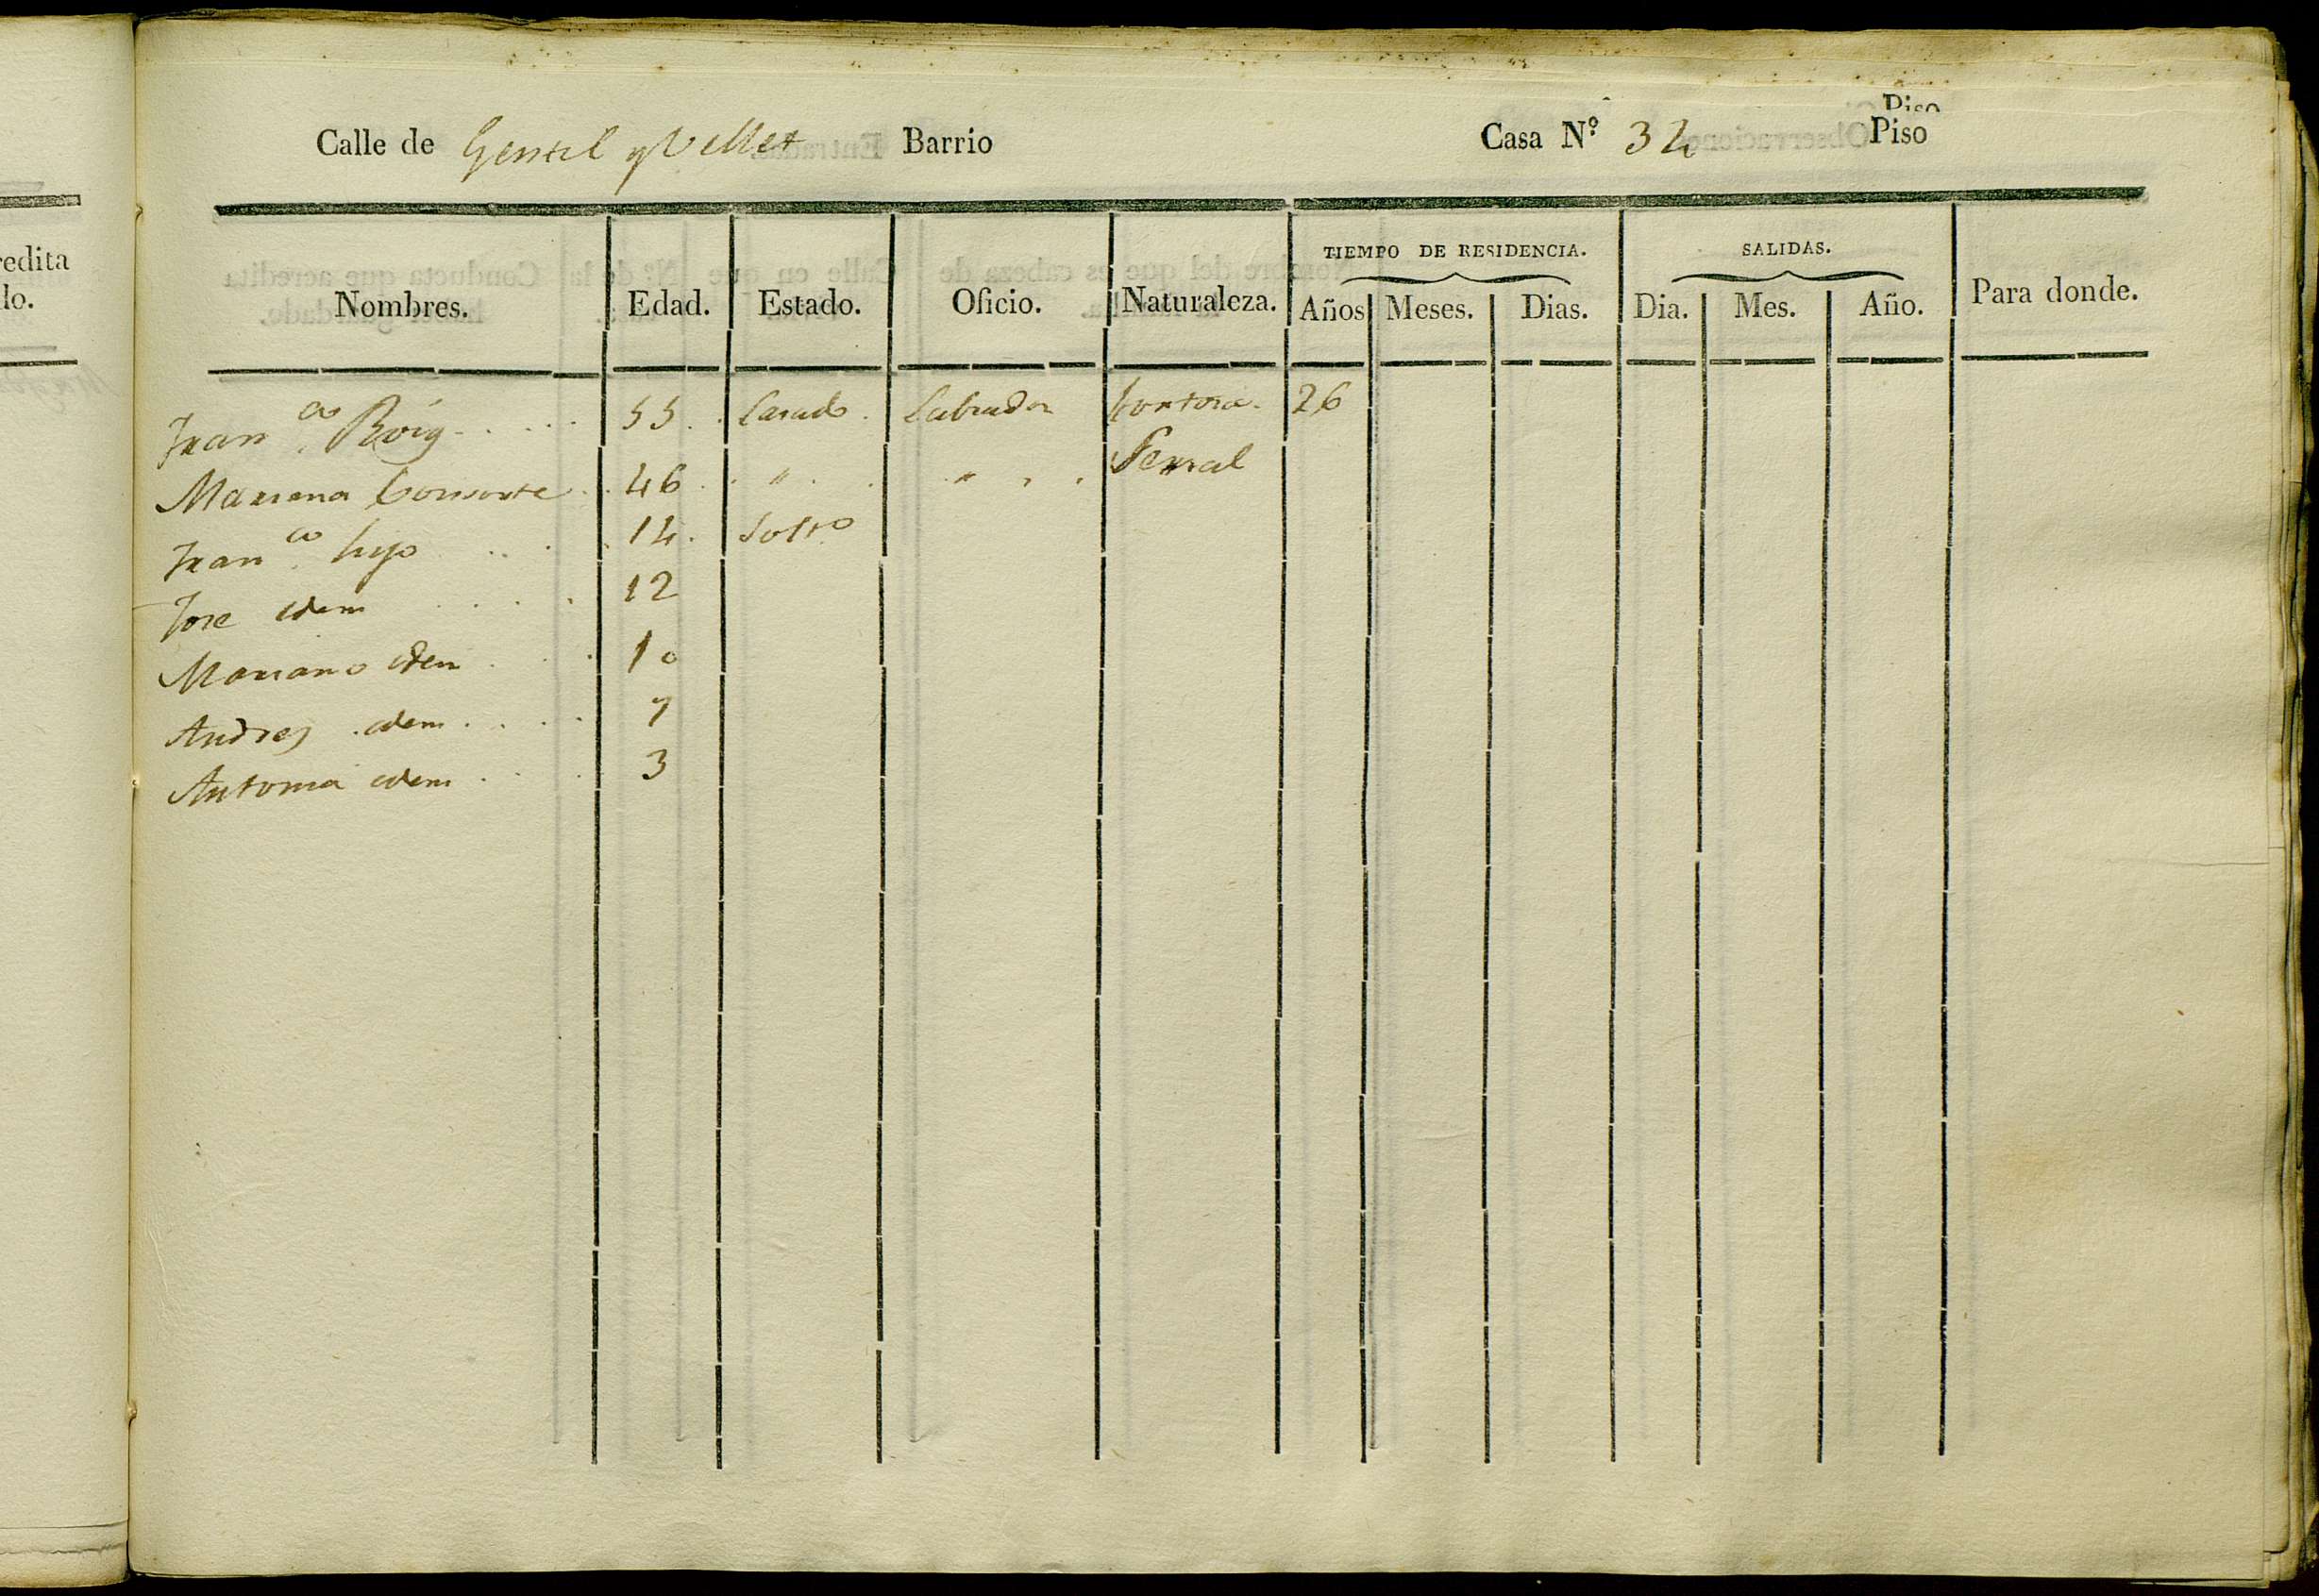 Piso
Calle de Gentil y Vellet Barrio Casa N.º 34 Piso
TIEMPO DE RESIDENCIA. SALIDAS.
Nombres. Edad. Estado. Oficio. Naturaleza. Años Meses. Dias. Dia. Mes. Año. Para donde.
Fran.co Roig 55 Casado Labrador 26
Mariana Consorte 46 " "
Fran.co hijo 14 Solt.o
Jose idem 12
Mariano idem 10
Andres idem 7
Antonia idem 3
redita
lo.